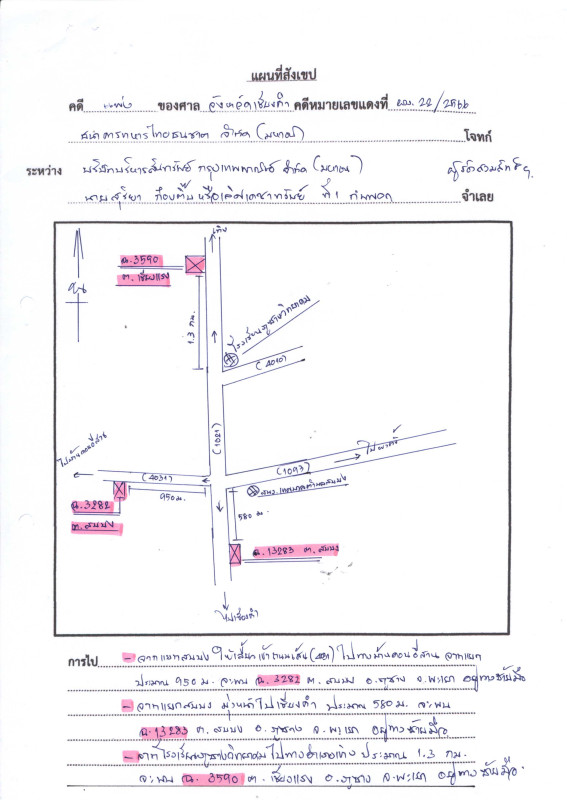 แผนที่สังเขป
คดี แพ่ง ของศาล จังหวัดเชียงคำ คดีหมายเลขแดงที่ ผบ. 22/2566
ธนาคารทหารไทยธนชาต จำกัด (มหาชน) โจทก์
ระหว่าง บริษัทบริหารสินทรัพย์ กรุงเทพพาณิชย์ จำกัด (มหาชน) ผู้เข้าสวมสิทธิฯ
นายสุริยา ที่ 1 กับพวก จำเลย
ไปเทิง
ฉ. 3590
ต. เชียงแรง
น
1.3 กม.
โรงเรียนภูซางวิทยาคม
(4010)
(1021)
ไปบ้านดอนอีสาน
(4031)
(1093)
ไปผาตั้ง
950 ม.
ฉ. 3282
ต. สบบง
580 ม.
สนง. เทศบาลตำบลสบบง
ฉ. 13283 ต. สบบง
ไปเชียงคำ
การไป - จากแยกสบบง ให้เลี้ยวเข้าถนนเส้น (4031) ไปทางบ้านดอนอีสาน จากแยก
ประมาณ 950 ม. จะพบ ฉ. 3282 ต. สบบง อ. ภูซาง จ. พะเยา อยู่ทางซ้ายมือ
- จากแยกสบบง มุ่งหน้าไปเชียงคำ ประมาณ 580 ม. จะพบ
ฉ. 13283 ต. สบบง อ. ภูซาง จ. พะเยา อยู่ทางซ้ายมือ
- จากโรงเรียนภูซางวิทยาคม ไปทางอำเภอเทิง ประมาณ 1.3 กม.
จะพบ ฉ. 3590 ต. เชียงแรง อ. ภูซาง จ. พะเยา อยู่ทางซ้ายมือ.